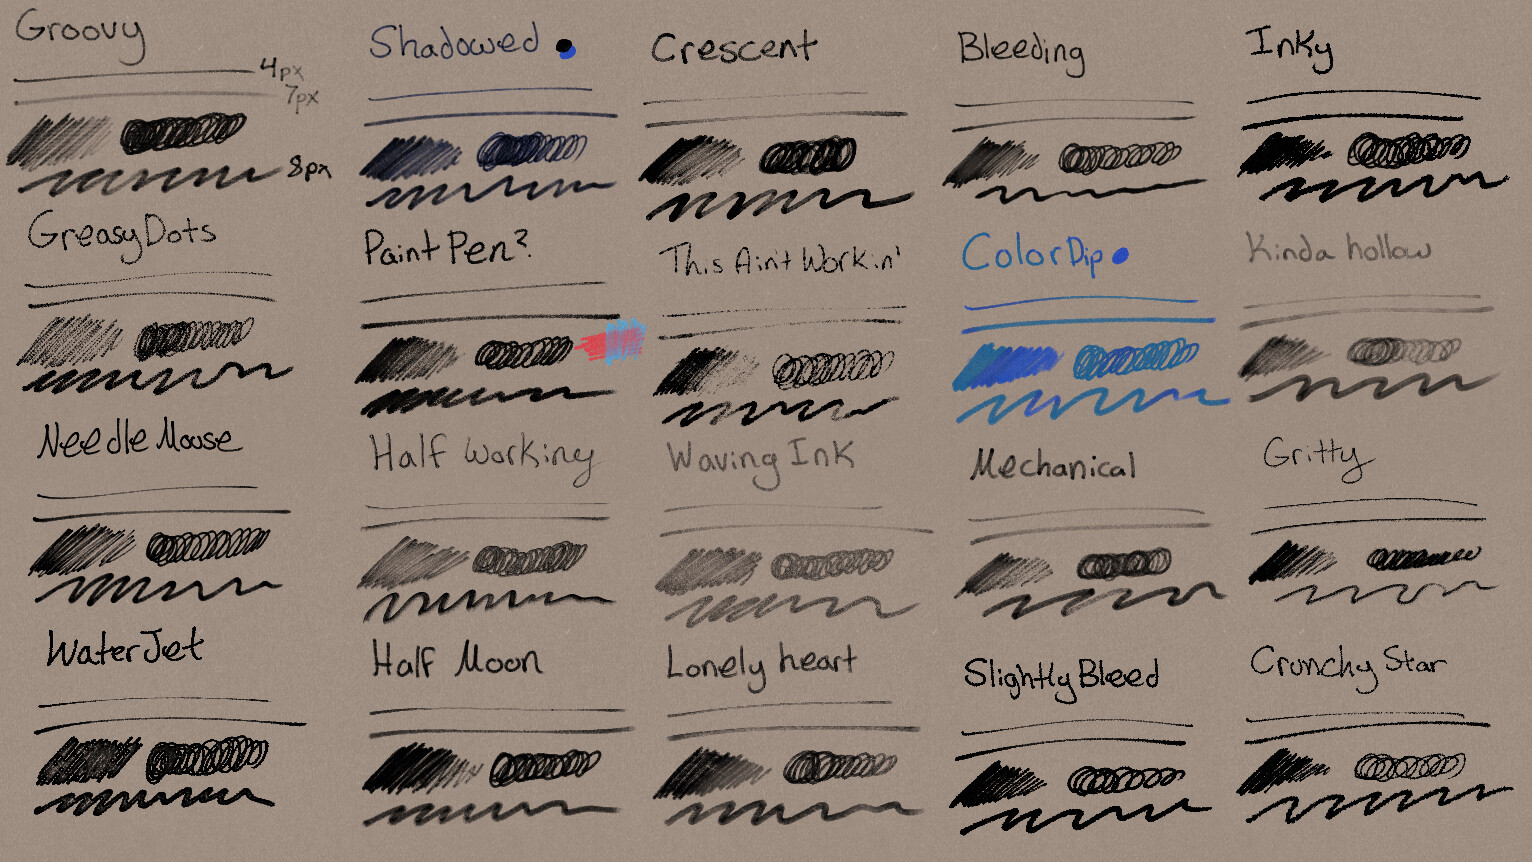 Groovy
4px
7px
8px
Shadowed
Crescent
Bleeding
Inky
GreasyDots
Paint Pen?
This Ain't Workin'
ColorDip
Kinda hollow
Needle Mouse
Half Working
Waving Ink
Mechanical
Gritty
WaterJet
Half Moon
Lonely heart
Slightly Bleed
Crunchy Star